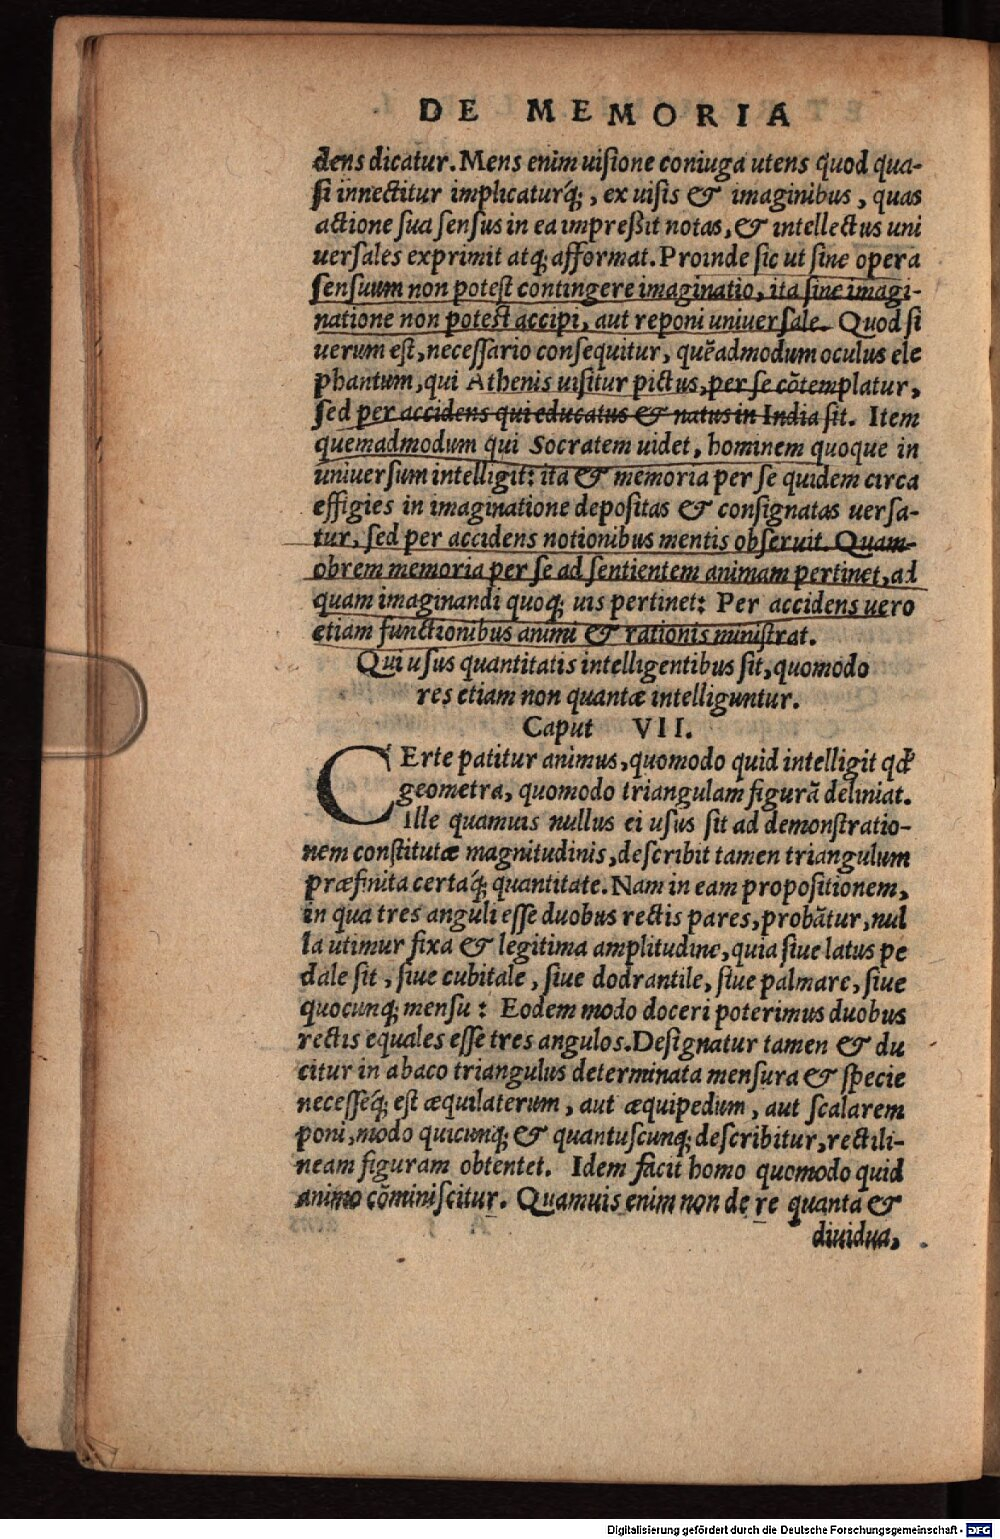 DE MEMORIA
dens dicatur. Mens enim uisione coniuga utens quod qua-
si innectitur implicaturq́;, ex uisis & imaginibus, quas
actione sua sensus in ea impreßit notas, & intellectus uni
uersales exprimit atq; afformat. Proinde sic ut sine opera
sensuum non potest contingere imaginatio, ita sine imagi-
natione non potest accipi, aut reponi uniuersale. Quod si
uerum est, necessario consequitur, quẽadmodum oculus ele
phantum, qui Athenis uisitur pictus, per se cõtemplatur,
sed per accidens qui educatus & natus in India sit. Item
quemadmodum qui Socratem uidet, hominem quoque in
uniuersum intelligit: ita & memoria per se quidem circa
effigies in imaginatione depositas & consignatas uersa-
tur, sed per accidens notionibus mentis obseruit. Quam-
obrem memoria per se ad sentientem animam pertinet, ad
quam imaginandi quoq; uis pertinet: Per accidens uero
etiam functionibus animi & rationis ministrat.
Qui usus quantitatis intelligentibus sit, quomodo
res etiam non quantæ intelliguntur.
Caput VII.
CErte patitur animus, quomodo quid intelligit qđ
geometra, quomodo triangulam figurã deliniat.
Ille quamuis nullus ei usus sit ad demonstratio-
nem constitutæ magnitudinis, describit tamen triangulum
præfinita certaq́; quantitate. Nam in eam propositionem,
in qua tres anguli esse duobus rectis pares, probãtur, nul
la utimur fixa & legitima amplitudine, quia siue latus pe
dale sit, siue cubitale, siue dodrantile, siue palmare, siue
quocunq; mensu: Eodem modo doceri poterimus duobus
rectis equales esse tres angulos. Designatur tamen & du
citur in abaco triangulus determinata mensura & specie
necesseq́; est æquilaterum, aut æquipedum, aut scalarem
poni, modo quicunq; & quantuscunq; describitur, rectili-
neam figuram obtentet. Idem facit homo quomodo quid
animo cõminiscitur. Quamuis enim non de re quanta &
diuidua,
Digitalisierung gefördert durch die Deutsche Forschungsgemeinschaft - DFG